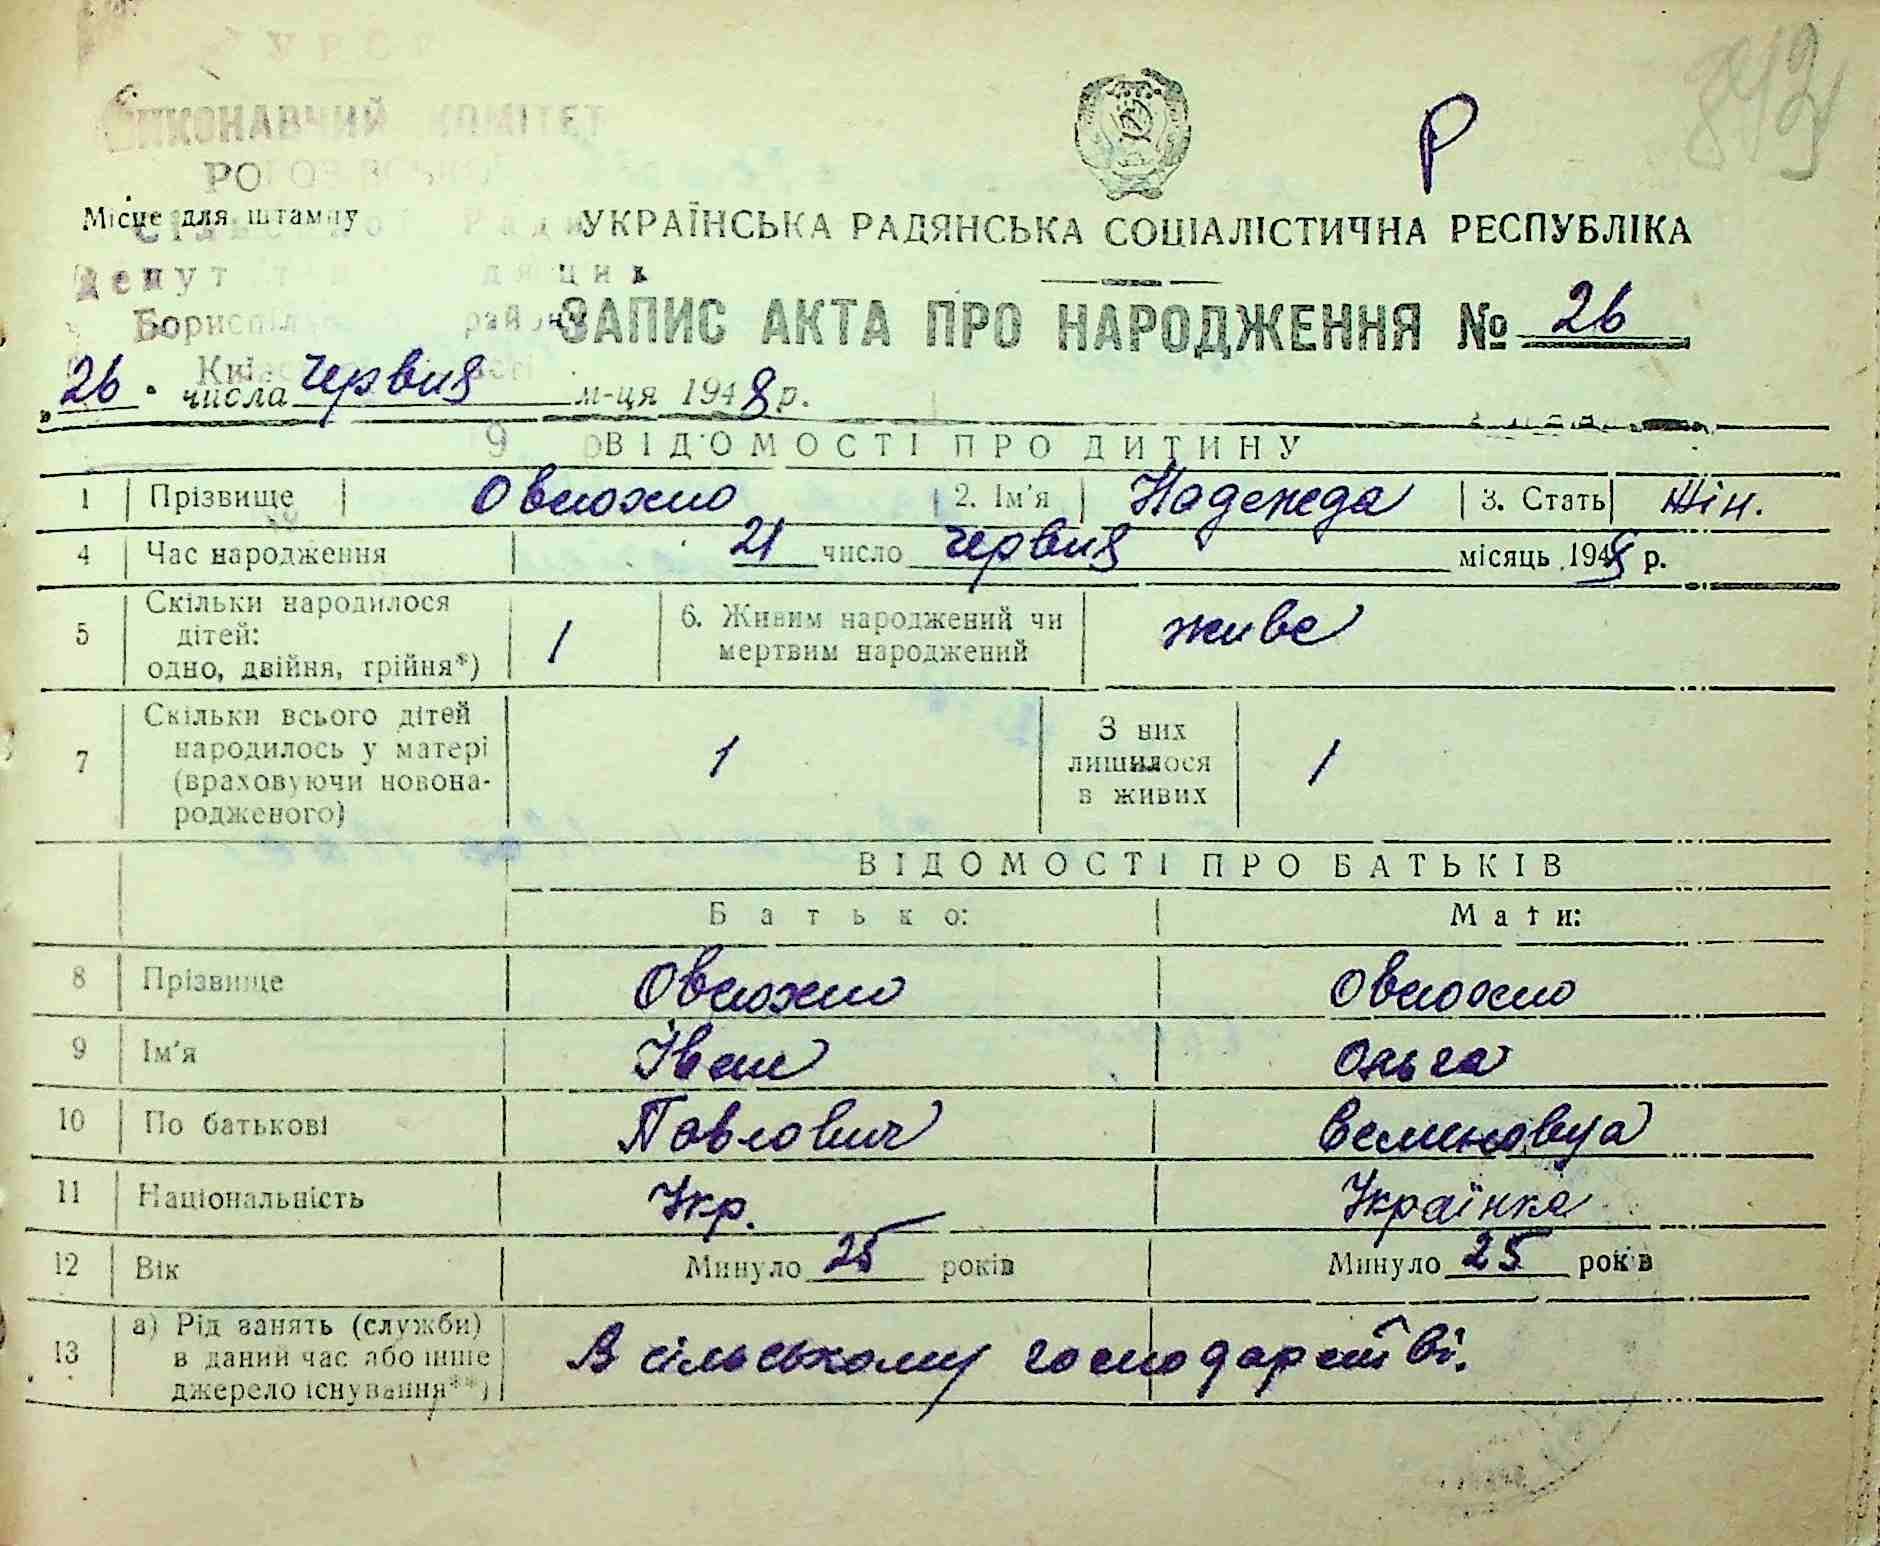 У Р С Р
ВИКОНАВЧИЙ КОМІТЕТ
Р 813
Місце для штампу
УКРАЇНСЬКА РАДЯНСЬКА СОЦІАЛІСТИЧНА РЕСПУБЛІКА
ЗАПИС АКТА ПРО НАРОДЖЕННЯ № 26
„26" числа червня м-ця 1948 р.
ВІДОМОСТІ ПРО ДИТИНУ
1 Прізвище Овсюхно 2. Ім'я Надежда 3. Стать Жін.
4 Час народження 21 число червня місяць 1948 р.
5 Скільки народилося
дітей:
одно, двійня, трійня*) 1
6. Живим народжений чи
мертвим народжений живе
7 Скільки всього дітей
народилось у матері
(враховуючи новона-
родженого) 1
З них
лишилося
в живих 1
ВІДОМОСТІ ПРО БАТЬКІВ
Батько: Мати:
8 Прізвище Овсюхно Овсюхно
9 Ім'я Іван Ольга
10 По батькові Павлович
11 Національність Укр. Українка
12 Вік Минуло 25 років Минуло 25 років
13 а) Рід занять (служби)
в даний час або інше
джерело існування**)
В сільському господарстві.